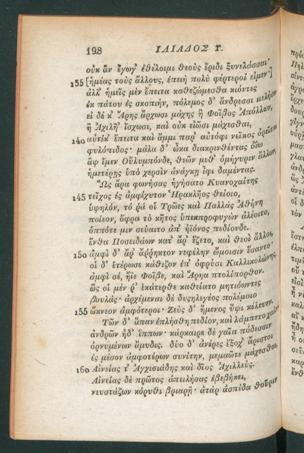 198 ΙΛΙΑΔΟΣ Υ.
οὐκ ἂν ἔγωγ' ἐθέλοιμι θεοὺς ἔριδι ξυνελάσσαι
135 [ἡμέας τοὺς ἄλλους, ἐπειὴ πολὺ φέρτεροί εἰμεν·]
ἀλλ' ἡμεῖς μὲν ἔπειτα καθεζώμεσθα κιόντες
ἐκ πάτου ἐς σκοπιήν, πόλεμος δ' ἄνδρεσσι μελήσει.
εἰ δέ κ' Ἄρης ἄρχωσι μάχης ἢ Φοῖβος Ἀπόλλων,
ἢ Ἀχιλῆ' ἴσχωσι, καὶ οὐκ εἰῶσι μάχεσθαι,
140 αὐτίκ' ἔπειτα καὶ ἄμμι παρ' αὐτόφι νεῖκος ὀρεῖται
φυλόπιδος· μάλα δ' ὦκα διακρινθέντας ὀΐω
ἂψ ἴμεν Οὔλυμπόνδε, θεῶν μεθ' ὁμήγυριν ἄλλων,
ἡμετέρῃς ὑπὸ χερσὶν ἀνάγκῃ ἶφι δαμέντας.
Ὣς ἄρα φωνήσας ἡγήσατο Κυανοχαίτης
145 τεῖχος ἐς ἀμφίχυτον Ἡρακλῆος θείοιο,
ὑψηλόν, τό ῥά οἱ Τρῶες καὶ Παλλὰς Ἀθήνη
ποίεον, ὄφρα τὸ κῆτος ὑπεκπροφυγὼν ἀλέοιτο,
ὁππότε μιν σεύαιτο ἀπ' ἠϊόνος πεδίονδε.
ἔνθα Ποσειδάων κατ' ἄρ' ἕζετο, καὶ θεοὶ ἄλλοι,
150 ἀμφὶ δ' ἄρ' ἄρρηκτον νεφέλην ὤμοισιν ἕσαντο·
οἱ δ' ἑτέρωσε κάθιζον ἐπ' ὀφρύσι Καλλικολώνης,
ἀμφὶ σέ, ἤϊε Φοῖβε, καὶ Ἄρηα πτολίπορθον.
ὣς οἱ μέν ῥ' ἑκάτερθε καθείατο μητιόωντες
βουλάς· ἀρχέμεναι δὲ δυσηλεγέος πολέμοιο
155 ὤκνεον ἀμφότεροι· Ζεὺς δ' ἥμενος ὕψι κέλευεν.
Τῶν δ' ἅπαν ἐπλήσθη πεδίον, καὶ λάμπετο χαλκῷ
ἀνδρῶν ἠδ' ἵππων· κάρκαιρε δὲ γαῖα πόδεσσιν
ὀρνυμένων ἄμυδις. δύο δ' ἀνέρες ἔξοχ' ἄριστοι
ἐς μέσον ἀμφοτέρων συνίτην, μεμαῶτε μάχεσθαι,
160 Αἰνείας τ' Ἀγχισιάδης καὶ δῖος Ἀχιλλεύς.
Αἰνείας δὲ πρῶτος ἀπειλήσας ἐβεβήκει,
νευστάζων κόρυθι βριαρῇ· ἀτὰρ ἀσπίδα θοῦριν